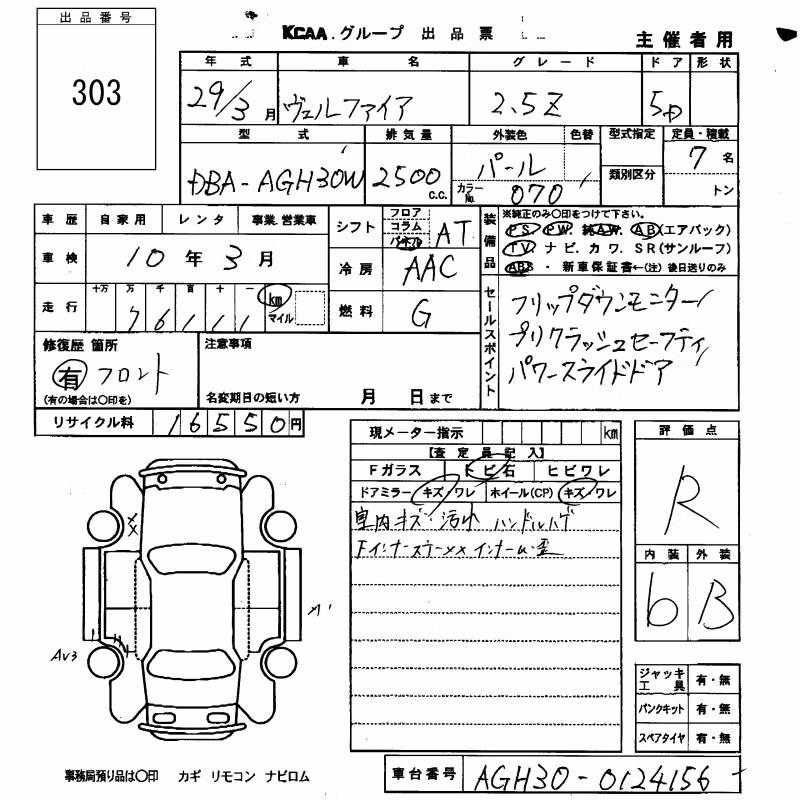 出品番号
303
KCAA.グループ 出品票
主催者用
年式 車名 グレード ドア 形状
29/3月 ヴェルファイア 2.5Z 5D
型式 排気量 外装色 色替 型式指定 定員・積載
DBA-AGH30W 2500 C.C. パール 類別区分 7名
カラーNo. 070 トン
車歴 自家用 レンタ 事業.営業車
シフト フロア コラム AT
装備品 ※純正のみ〇印をつけて下さい。
PS PW AW AB(エアバック)
TV ナビ.カワ.SR(サンルーフ)
ABS ・新車保証書←(注)後日送りのみ
車検 10年3月
冷房 AAC
走行 十万 万 千 百 十 一
76111 km マイル
燃料 G
セールスポイント
フリップダウンモニター
プリクラッシュセーフティ
パワースライドドア
修復歴 箇所
有 フロント
(有の場合は〇印を)
注意事項
名変期日の短い方 月 日まで
リサイクル料 16550円
現メーター指示 km
【査定員記入】
Fガラス トビ石 ヒビワレ
ドアミラー キズ/ワレ ホイール(CP) キズ/ワレ
室内キズ・汚レ ハンドルハゲ
評価点
R
内装 外装
6 B
AV3
ジャッキ 工具 有・無
パンクキット 有・無
スペアタイヤ 有・無
事務局預り品は〇印 カギ リモコン ナビロム
車台番号 AGH30-0124156